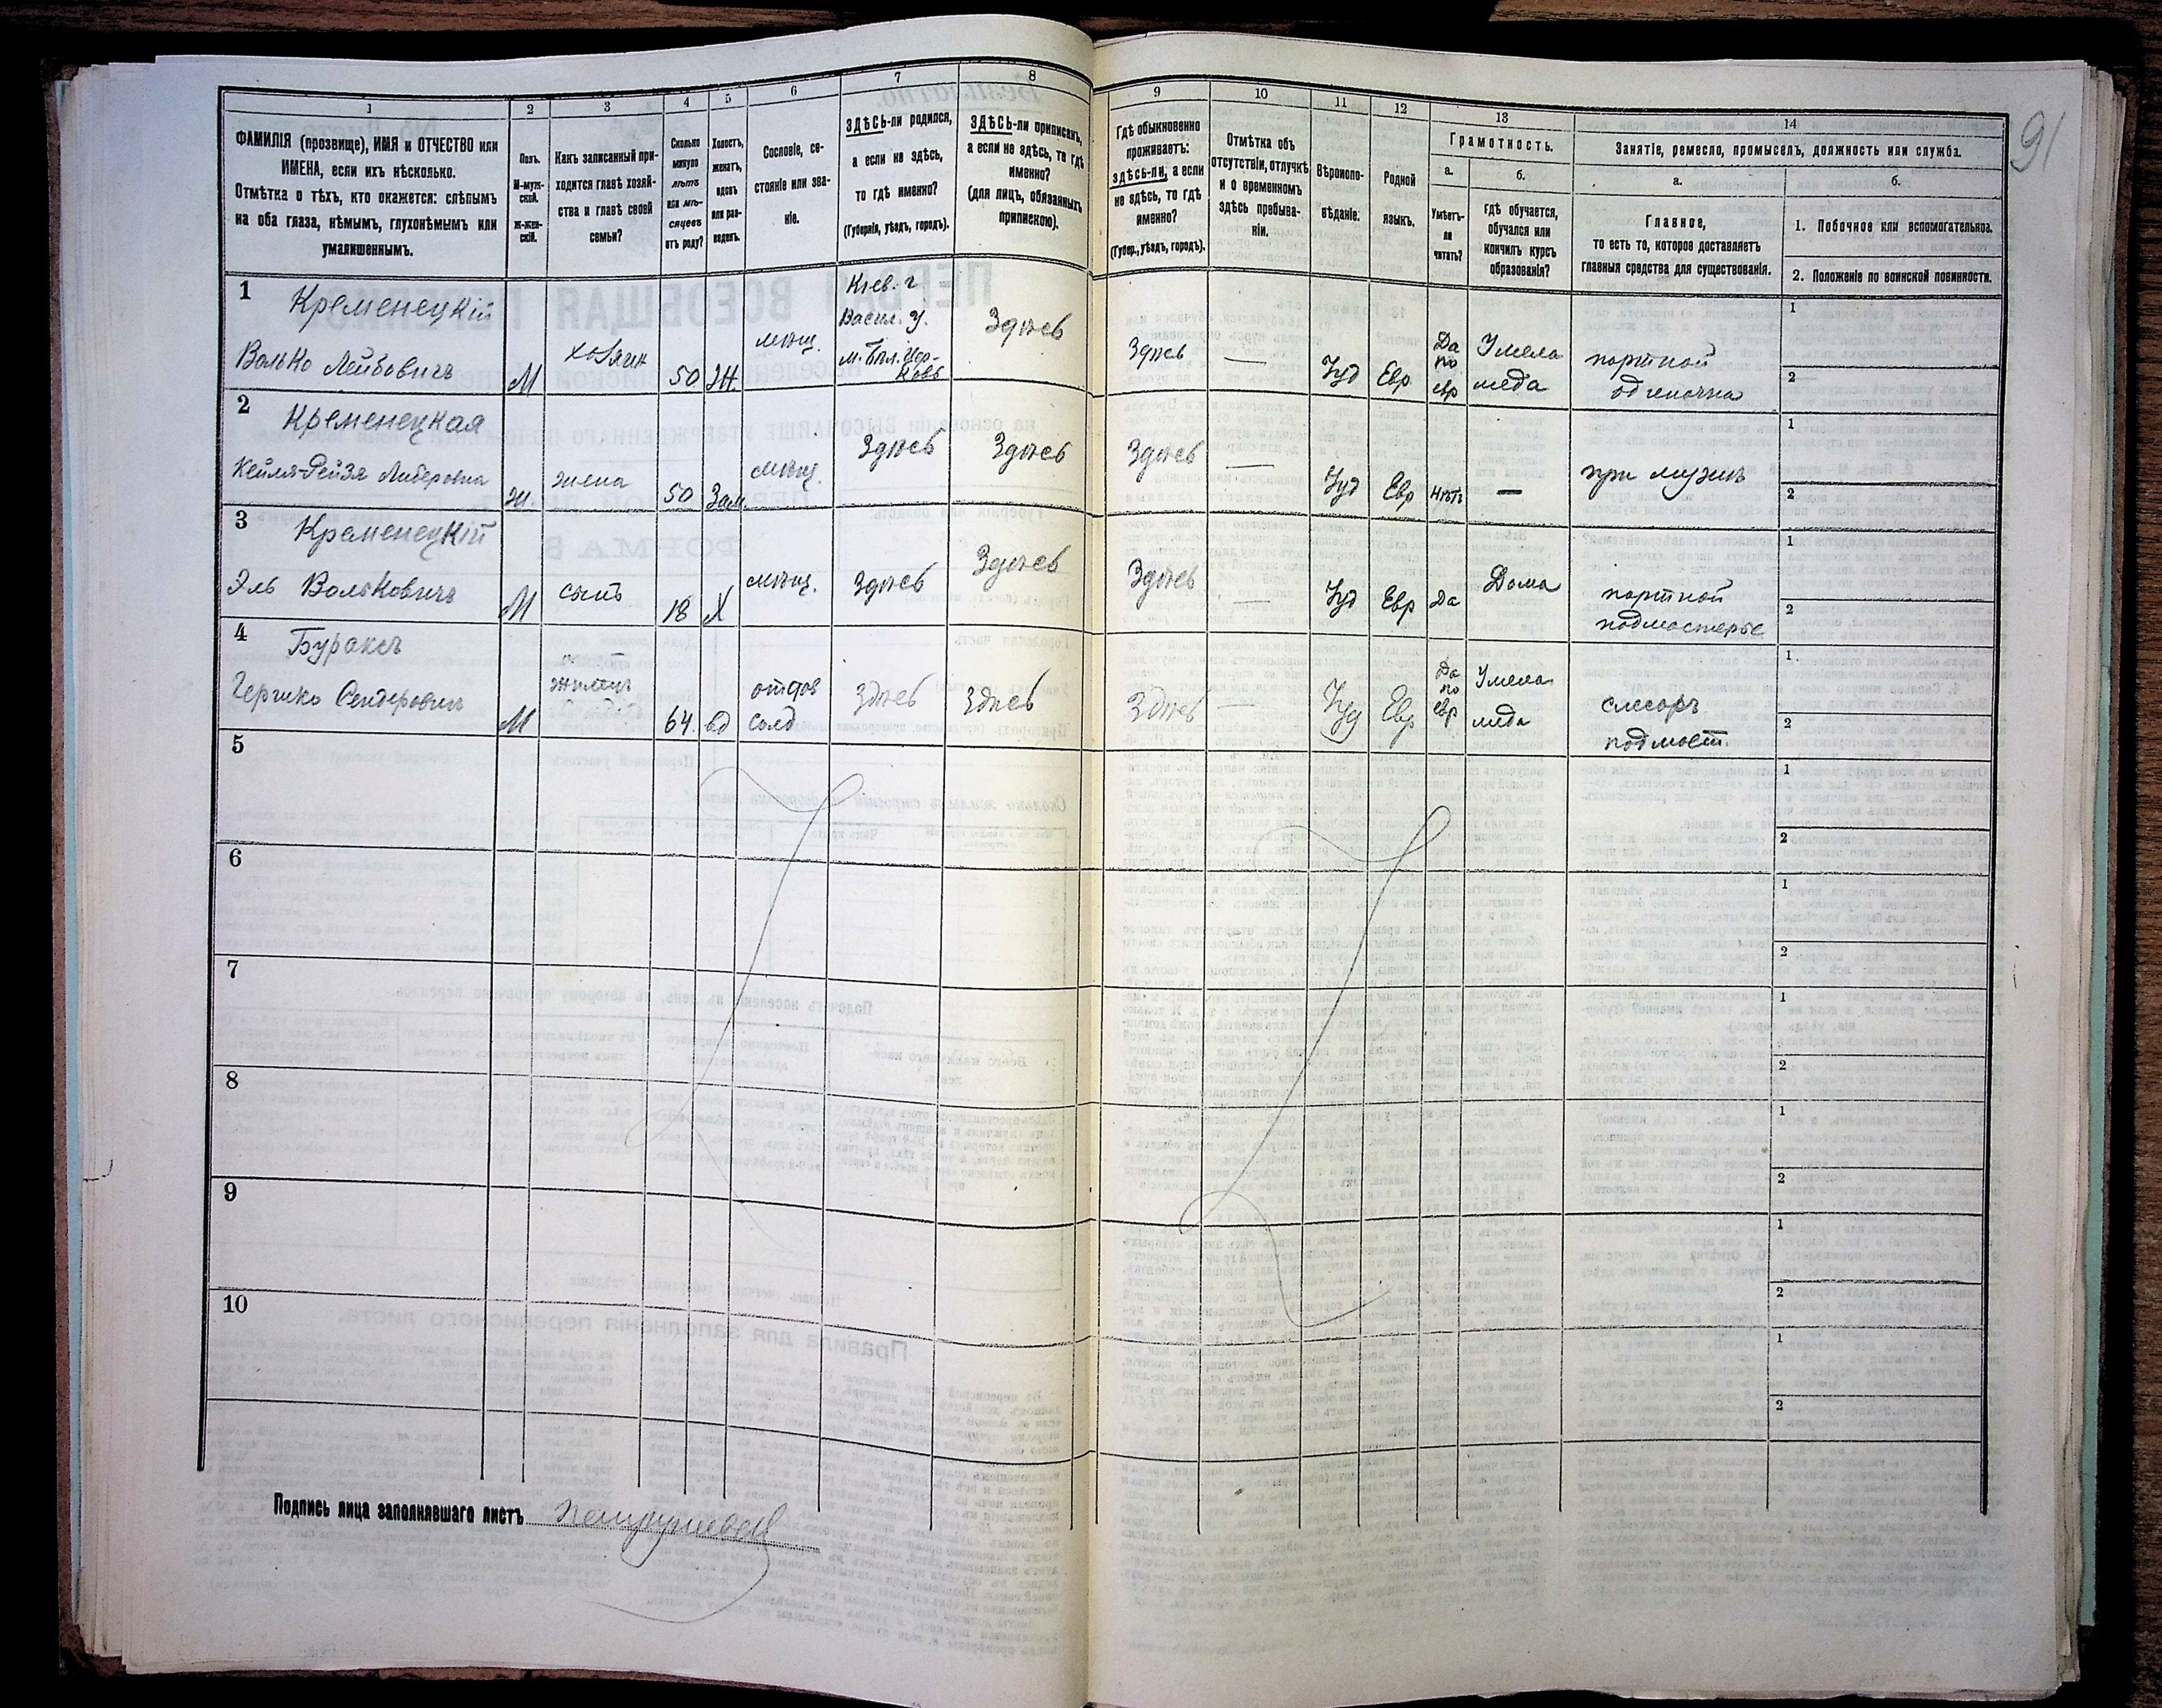 1
2
3
4
5
6
7
8
9
10
11
12
13
14
91
ФАМИЛІЯ (прозвище), ИМЯ и ОТЧЕСТВО или
ИМЕНА, если ихъ нѣсколько.
Отмѣтка о тѣхъ, кто окажется: слѣпымъ
на оба глаза, нѣмымъ, глухонѣмымъ или
умалишеннымъ.
Полъ.
М-муж-
ской.
Ж-жен-
скій.
Какъ записанный при-
ходится главѣ хозяй-
ства и главѣ своей
семьи?
Сколько
минуло
лѣтъ
или мѣ-
сяцевъ
отъ роду?
Холостъ,
женатъ,
вдовъ
или раз-
веденъ.
Сословіе, со-
стояніе или зва-
ніе.
ЗДѢСЬ-ли родился,
а если не здѣсь,
то гдѣ именно?
(Губернія, уѣздъ, городъ).
ЗДѢСЬ-ли приписанъ,
а если не здѣсь, то гдѣ
именно?
(для лицъ, обязанныхъ
припискою).
Гдѣ обыкновенно
проживаетъ:
здѣсь-ли, а если
не здѣсь, то гдѣ
именно?
(Губер., уѣздъ, городъ).
Отмѣтка объ
отсутствіи, отлучкѣ
и о временномъ
здѣсь пребыва-
ніи.
Вѣроиспо-
вѣданіе.
Родной
языкъ.
Грамотность.
а.
б.
Умѣетъ-
ли
читать?
гдѣ обучается,
обучался или
кончилъ курсъ
образованія?
Занятіе, ремесло, промыселъ, должность или служба.
а.
б.
Главное,
то есть то, которое доставляетъ
главныя средства для существованія.
1. Побочное или вспомогательное.
2. Положеніе по воинской повинности.
1
Кременецкій
Волько Лейбовичъ
М
хозяин
50
Ж
мѣщ.
Кіев. г
Васил. у.
м. Бѣл. Цер-
ковь
Здѣсь
Здѣсь
—
Іуд
Евр
Да
по
евр
Умела
меда
портной
одиночка
1
2
2
Кременецкая
Кейля-Рейзя Либеровна
ж.
жена
50
Зам.
мѣщ.
Здѣсь
Здѣсь
Здѣсь
—
Іуд
Евр
Нѣтъ
—
при мужѣ
1
2
3
Кременецкій
Эль Вольковичъ
М
сынъ
18
Х
мѣщ.
Здѣсь
Здѣсь
Здѣсь
—
Іуд
Евр
Да
Дома
портной
подмастерье
1
2
4
Гершко Сендерович
М
жилец
64
вд
отстав
солд
Здѣсь
Здѣсь
Здѣсь
—
Іуд
Евр
Да
по
евр
Умела
меда
слесарь
подмаст.
1.
2
5
1
2
6
1
2
7
1
2
8
1
2
9
1
2
10
1
2
Подпись лица заполнявшаго листъ